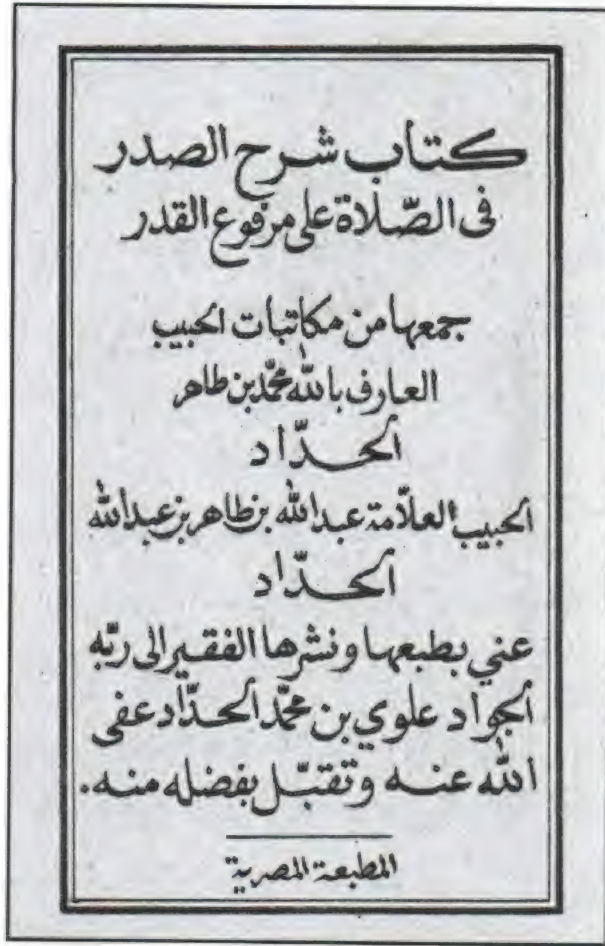 كتاب شرح الصدر
فى الصّلاة على مرفوع القدر
جمعها من مكاتبات الحبيب
العارف بالله محمّد بن طاهر
الحدّاد
الحبيب العلاّمة عبدالله بن طاهر بن عبدالله
الحدّاد
عني بطبعها ونشرها الفقير الى ربّه
الجواد علوي بن محمّد الحدّاد عفى
الله عنه وتقبّل بفضله منه.
المطبعة المصرية